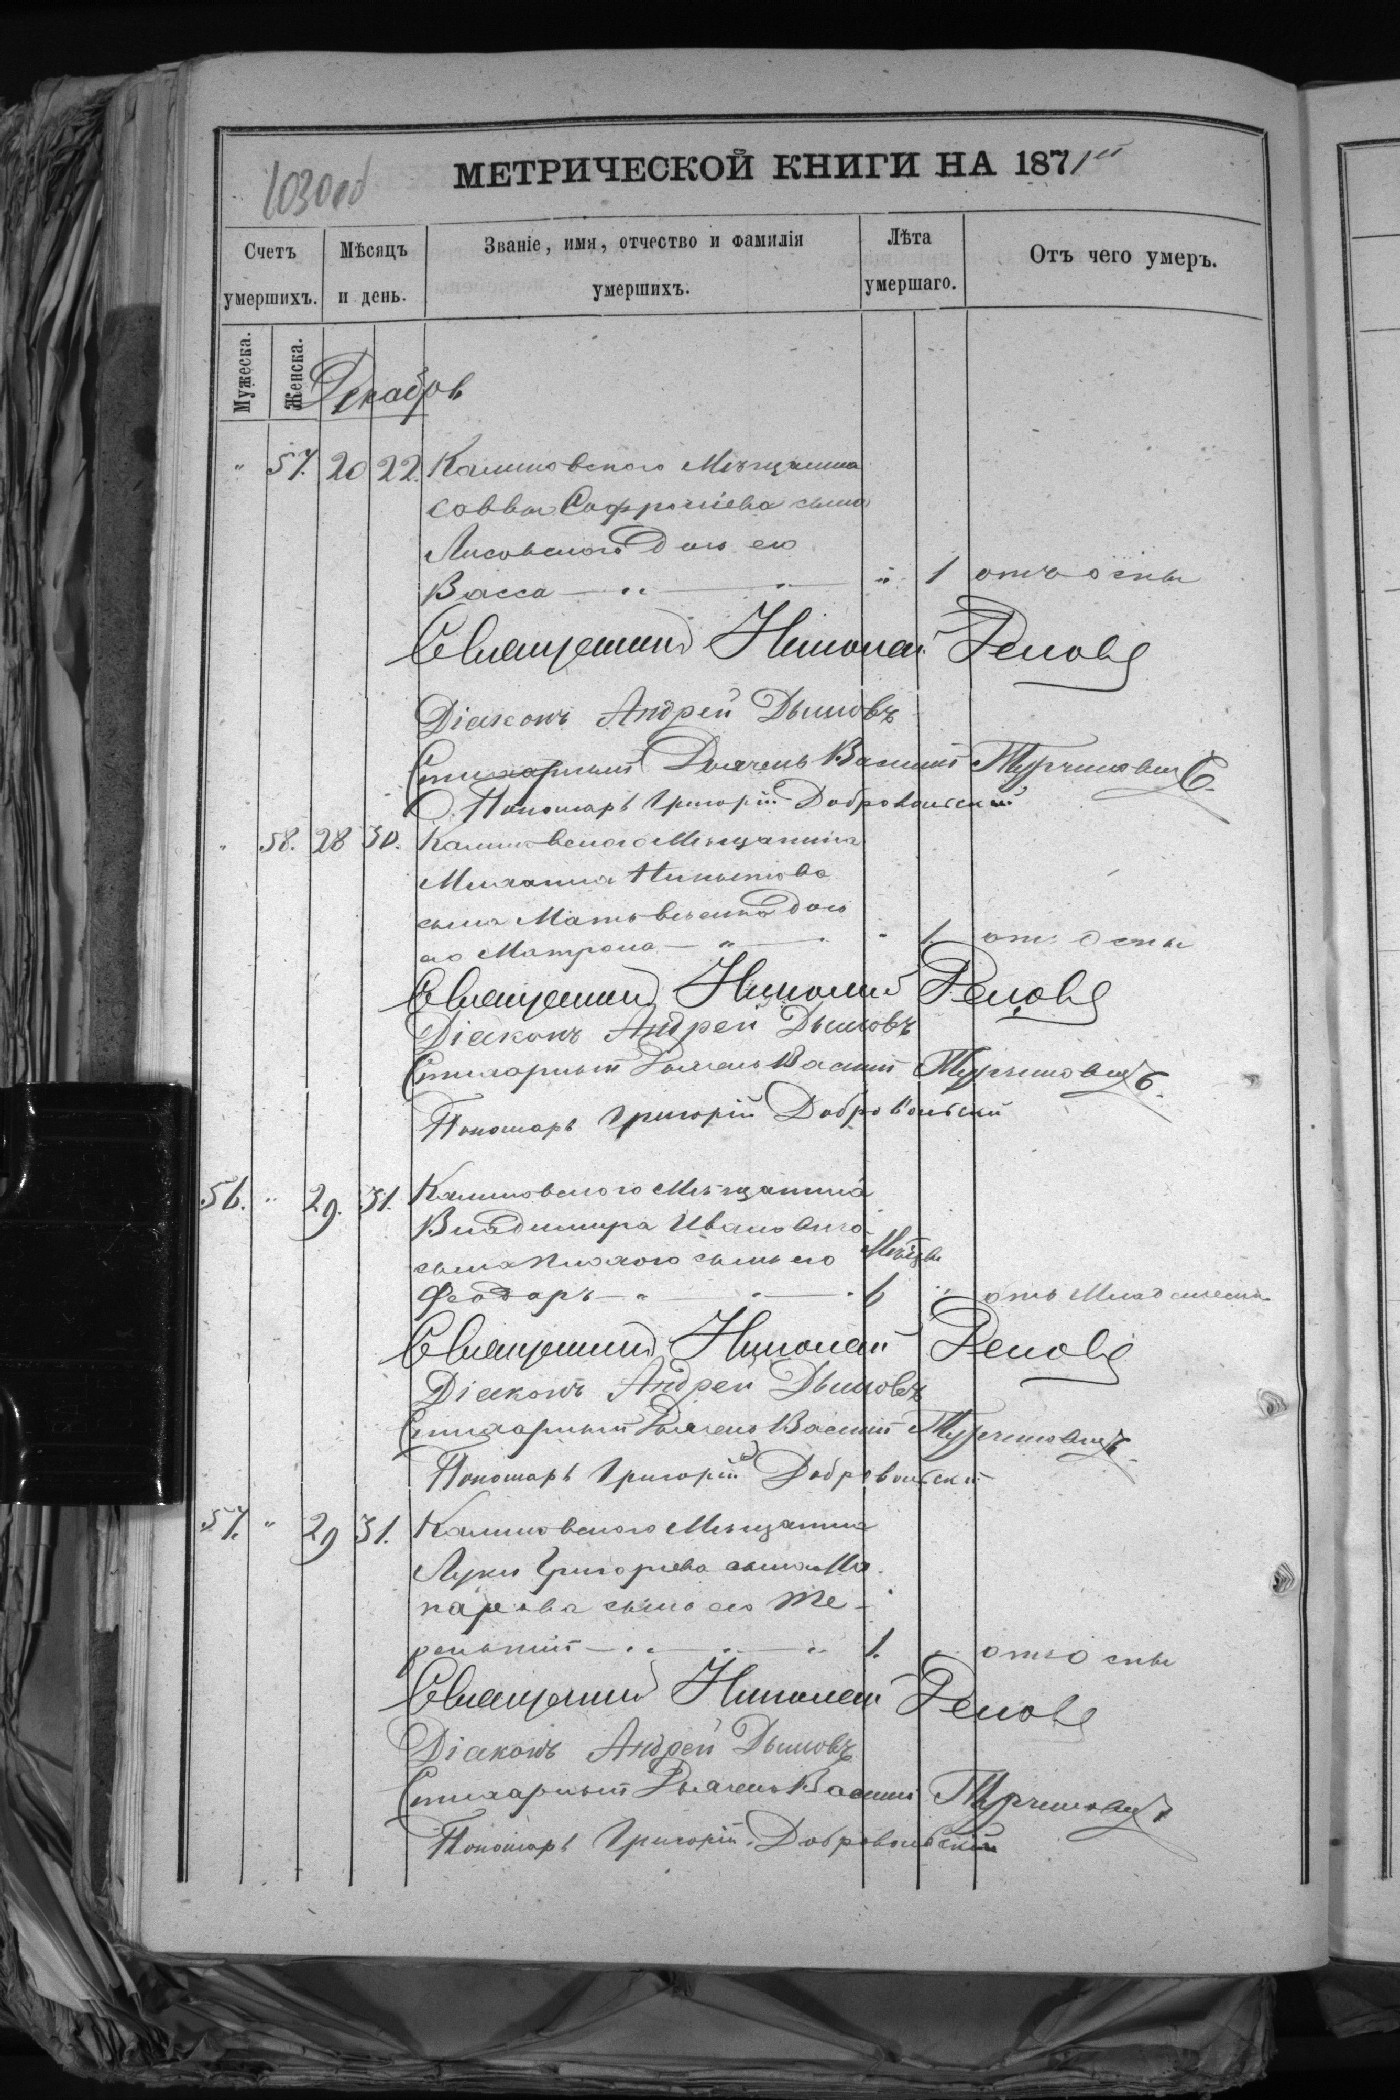 1030 об
МЕТРИЧЕСКОЙ КНИГИ НА 1871й
Счетъ умершихъ. Мѣсяцъ и день. Званіе, имя, отчество и фамилія умершихъ. Лѣта умершаго. Отъ чего умеръ.
Мужеска. Женска.
Декабрь
" 57. 20 22. Калиновского Мѣщанина
Саввы Софроніева сына
Лисовского дочь его
Васса " 1 отъ оспы
Священникъ Николай
Діаконъ Андрей Дымовъ
Стихарный Дьячекъ Василій
Пономарь Григорій Добровольскій
" 58. 28 30. Калиновского Мѣщанина
Михаила Никитова
сына дочь
его Матрона " 1 отъ оспы
Священникъ Николай
Діаконъ Андрей Дымовъ
Стихарный Дьячекъ Василій
Пономарь Григорій Добровольскій
56. " 29. 31. Калиновского Мѣщанина
Владимира Иванова
сына сынъ его
Феодоръ 6 " отъ
Священникъ Николай
Діаконъ Андрей Дымовъ
Стихарный Дьячекъ Василій
Пономарь Григорій Добровольскій
57. " 29 31. Калиновского Мѣщанина
Луки Григорьева сына Ма
карова сынъ его Те-
рентій 1. " отъ оспы
Священникъ Николай
Діаконъ Андрей Дымовъ
Стихарный Дьячекъ Василій
Пономарь Григорій Добровольскій